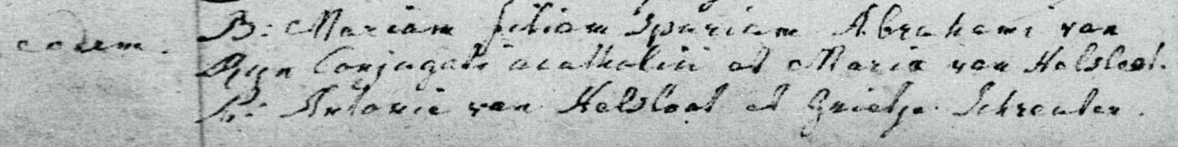 eodem. B: Mariam filiam spuriam Abrahami van
Ryn Conjugati acatholici et Maria van Halsloot.
P: Antonie van Halsloot et Grietje Schreuder.